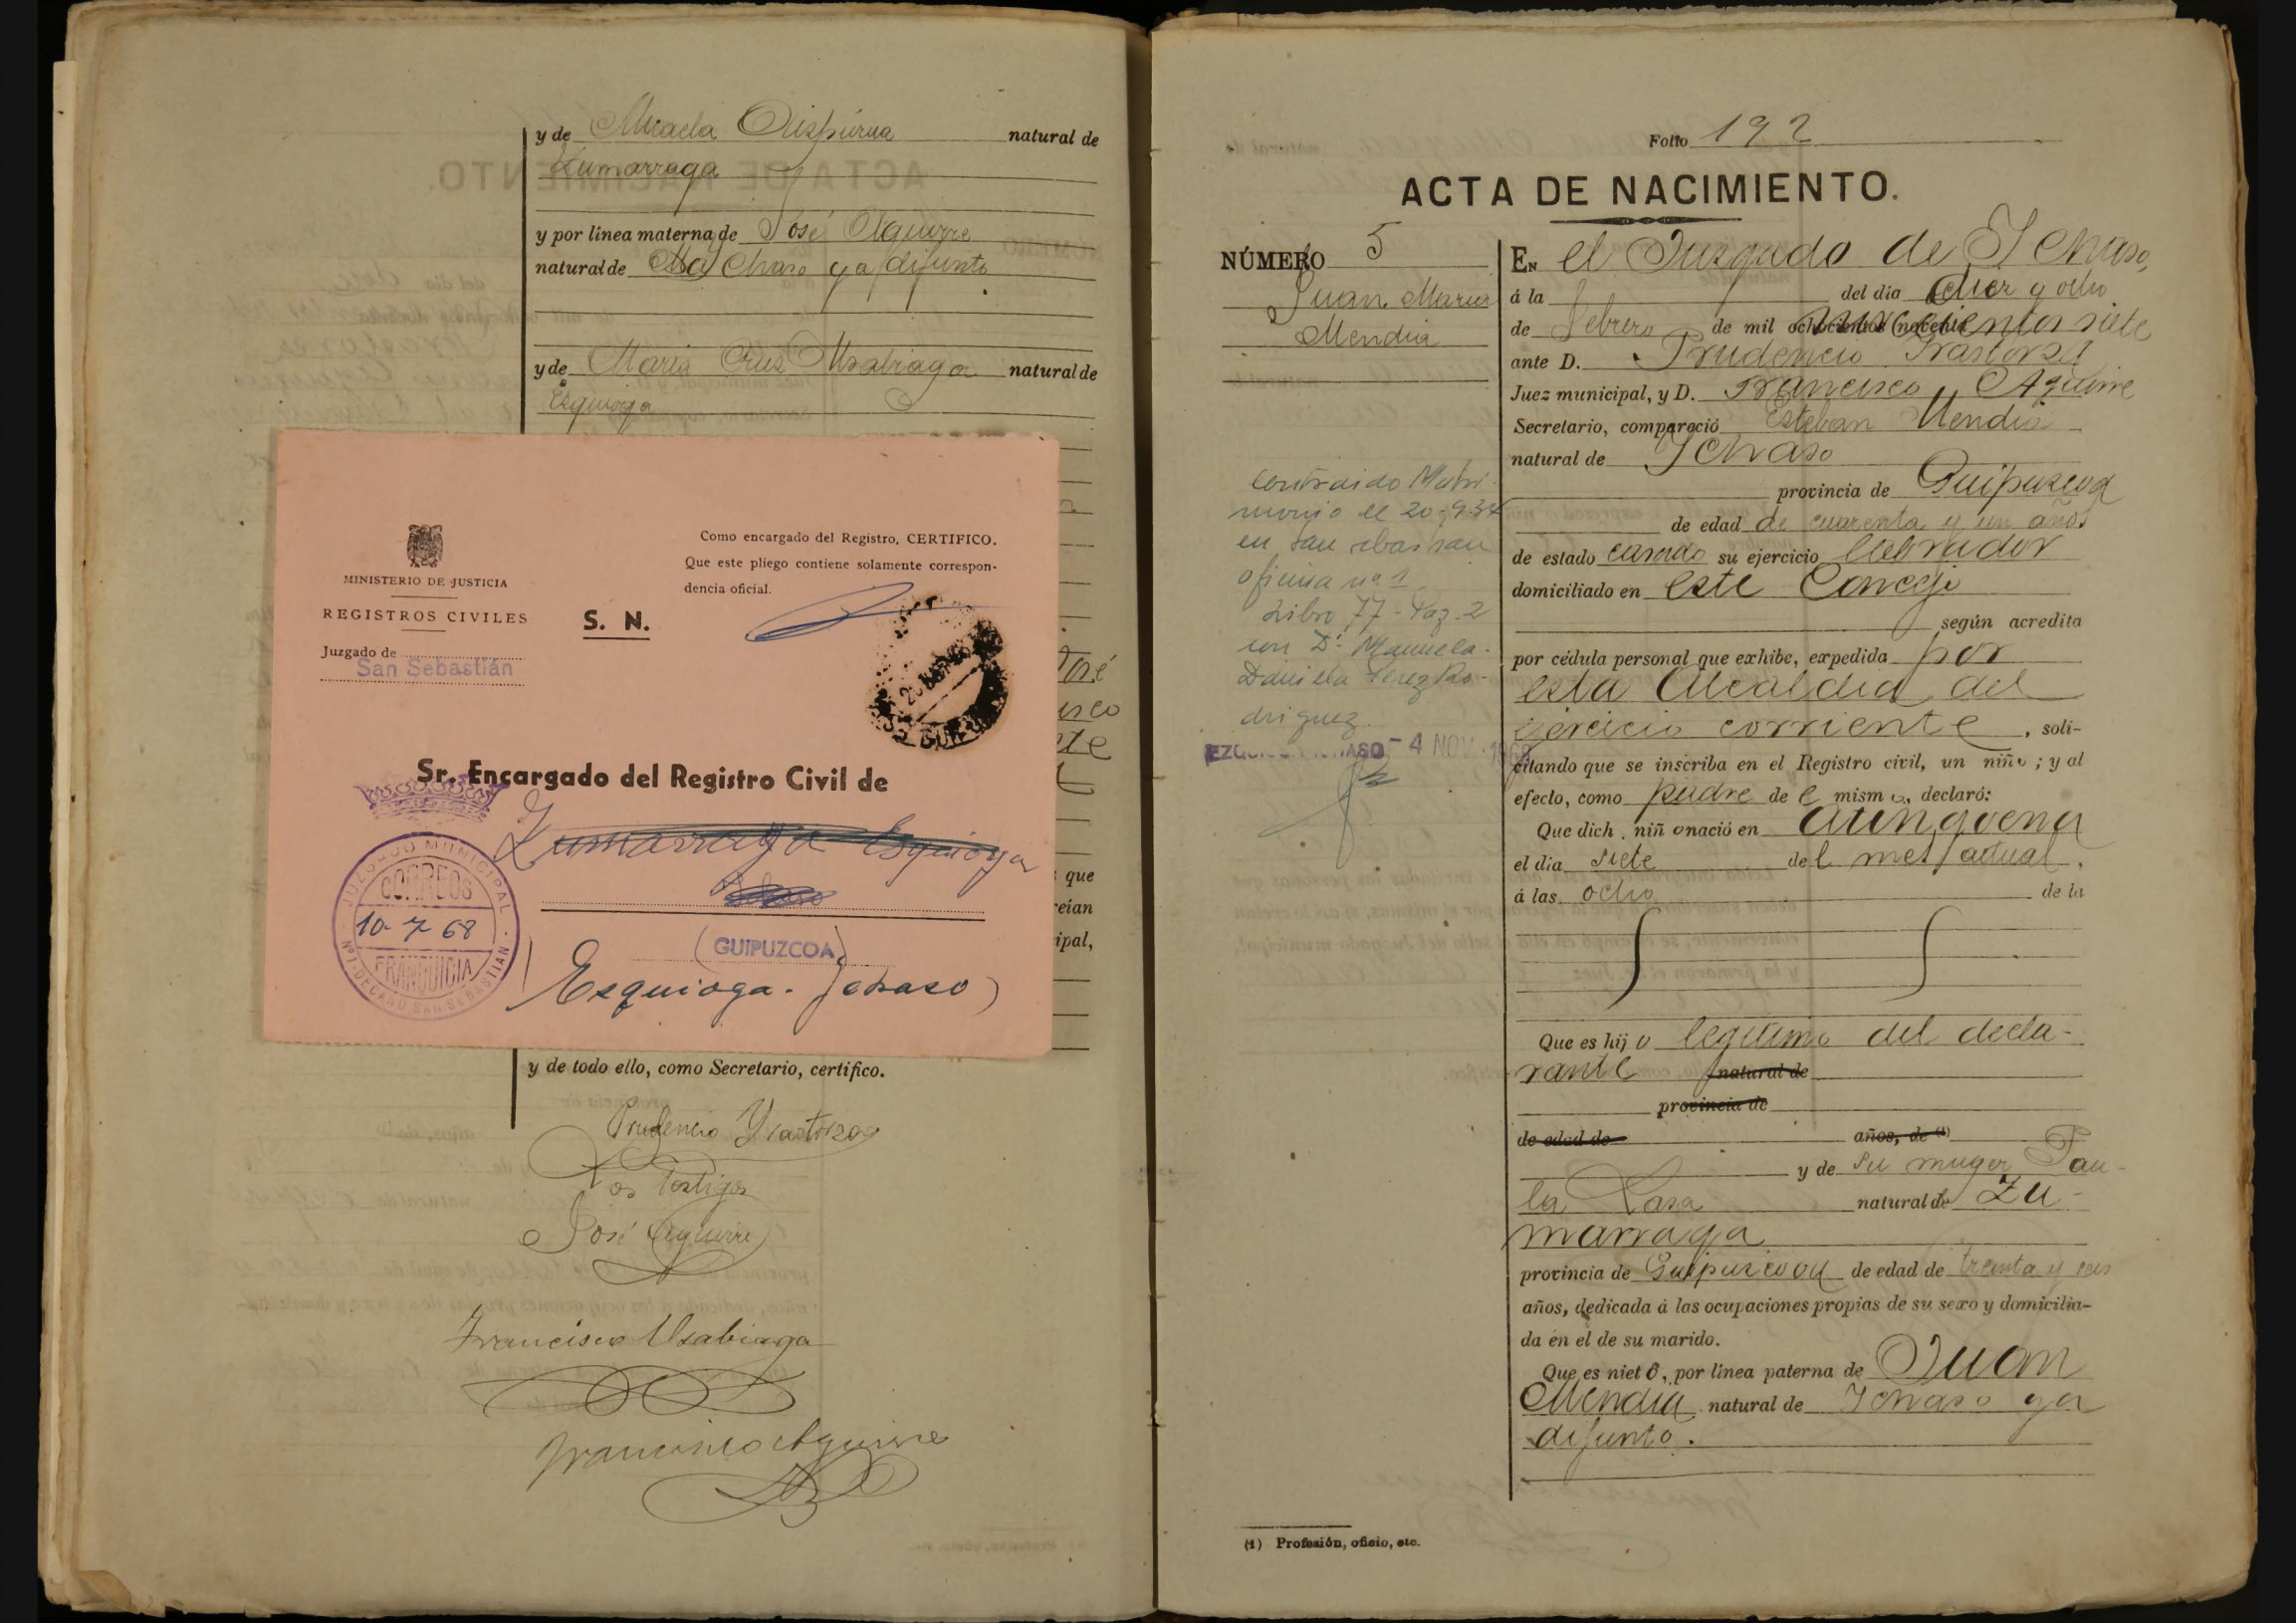 y de Micaela Oispurua natural de
Zumarraga
y por línea materna de José Aguirre
natural de Ychaso ya difunto
y de Maria Cruz Usabiaga natural de
Esquioga
MINISTERIO DE JUSTICIA
REGISTROS CIVILES
Juzgado de
San Sebastián
S. N.
Como encargado del Registro, CERTIFICO.
Que este pliego contiene solamente correspon-
dencia oficial.
Sr. Encargado del Registro Civil de
Zumarraga Esquioga
(GUIPUZCOA)
Esquioga. Ichaso)
JUZGADO MUNICIPAL
CORREOS
10-7-68
FRANQUICIA
Nº1-DECANO SAN SEBASTIAN
José
isco
te
que
reían
ipal,
y de todo ello, como Secretario, certifico.
Prudencio Yrastorza
Los Testigos
José Aguirre
Francisco Usabiaga
Francisco Aguirre
Folio 192
ACTA DE NACIMIENTO.
NÚMERO 5
Juan Maria
Mendia
contraido Matri-
monio el 20-9-34
en San Sebastian
oficina nº 1
Libro 77 - Pag. 2
con Dª Manuela
Daniela Perez Ro-
driguez.
- 4 NOV. 1968
En el Juzgado de Ychaso,
á la del dia diez y ocho
de Febrero de mil novecientos siete
ante D. Prudencio Yrastorza
Juez municipal, y D. Francisco Aguirre
Secretario, compareció Esteban Mendia
natural de Ychaso
provincia de Guipuzcoa
de edad de cuarenta y un años
de estado casado su ejercicio labrador
domiciliado en este Concejo
según acredita
por cédula personal que exhibe, expedida por
esta Alcaldia del
ejercicio corriente, soli-
citando que se inscriba en el Registro civil, un niño; y al
efecto, como padre de el mismo, declaró:
Que dich. niño nació en
el dia siete del mes actual,
á las ocho de la
Que es hijo legitimo del decla-
rante natural de
provincia de
de edad de años, de (1)
y de su muger Pau-
la Lasa natural de Zu-
marraga
provincia de Guipuzcoa de edad de treinta y seis
años, dedicada á las ocupaciones propias de su sexo y domicilia-
da en el de su marido.
Que es nieto, por línea paterna de Juan
Mendia natural de Ychaso ya
difunto.
(1) Profesión, oficio, etc.